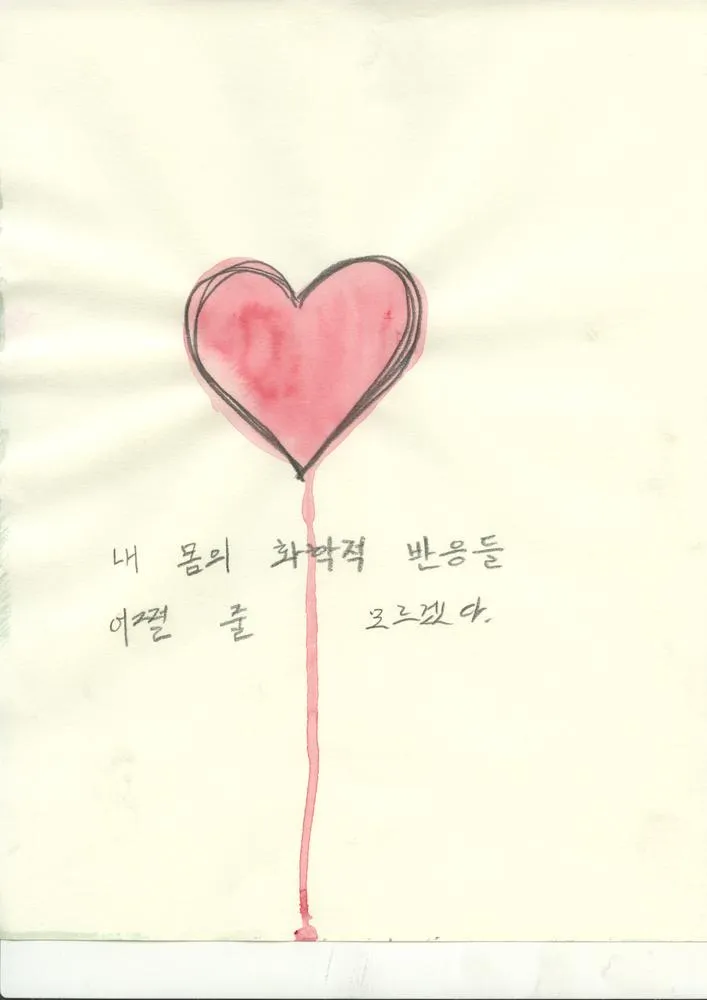 내 몸의 화학적 반응들
어쩔 줄 모르겠다.